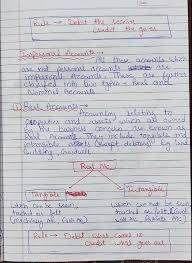 Rule → Debit the receiver
Credit the giver
Impersonal Accounts →
All those accounts which
are not personal accounts
impersonal Accounts. These are further
classified into two types → Real and
Nominal Accounts
(1) Real Accounts →
Accounts relating to
properties and assets which are owned
by the business concern are known as
Real Accounts. They include tangible and
intangible assets (except debtors) eg Land
Building, Goodwill
Real A/c
Tangible
Intangible
which can be seen,
touched or felt
which can not be seen
touched or felt (Good
Rule → Debit what comes in
Credit what goes out